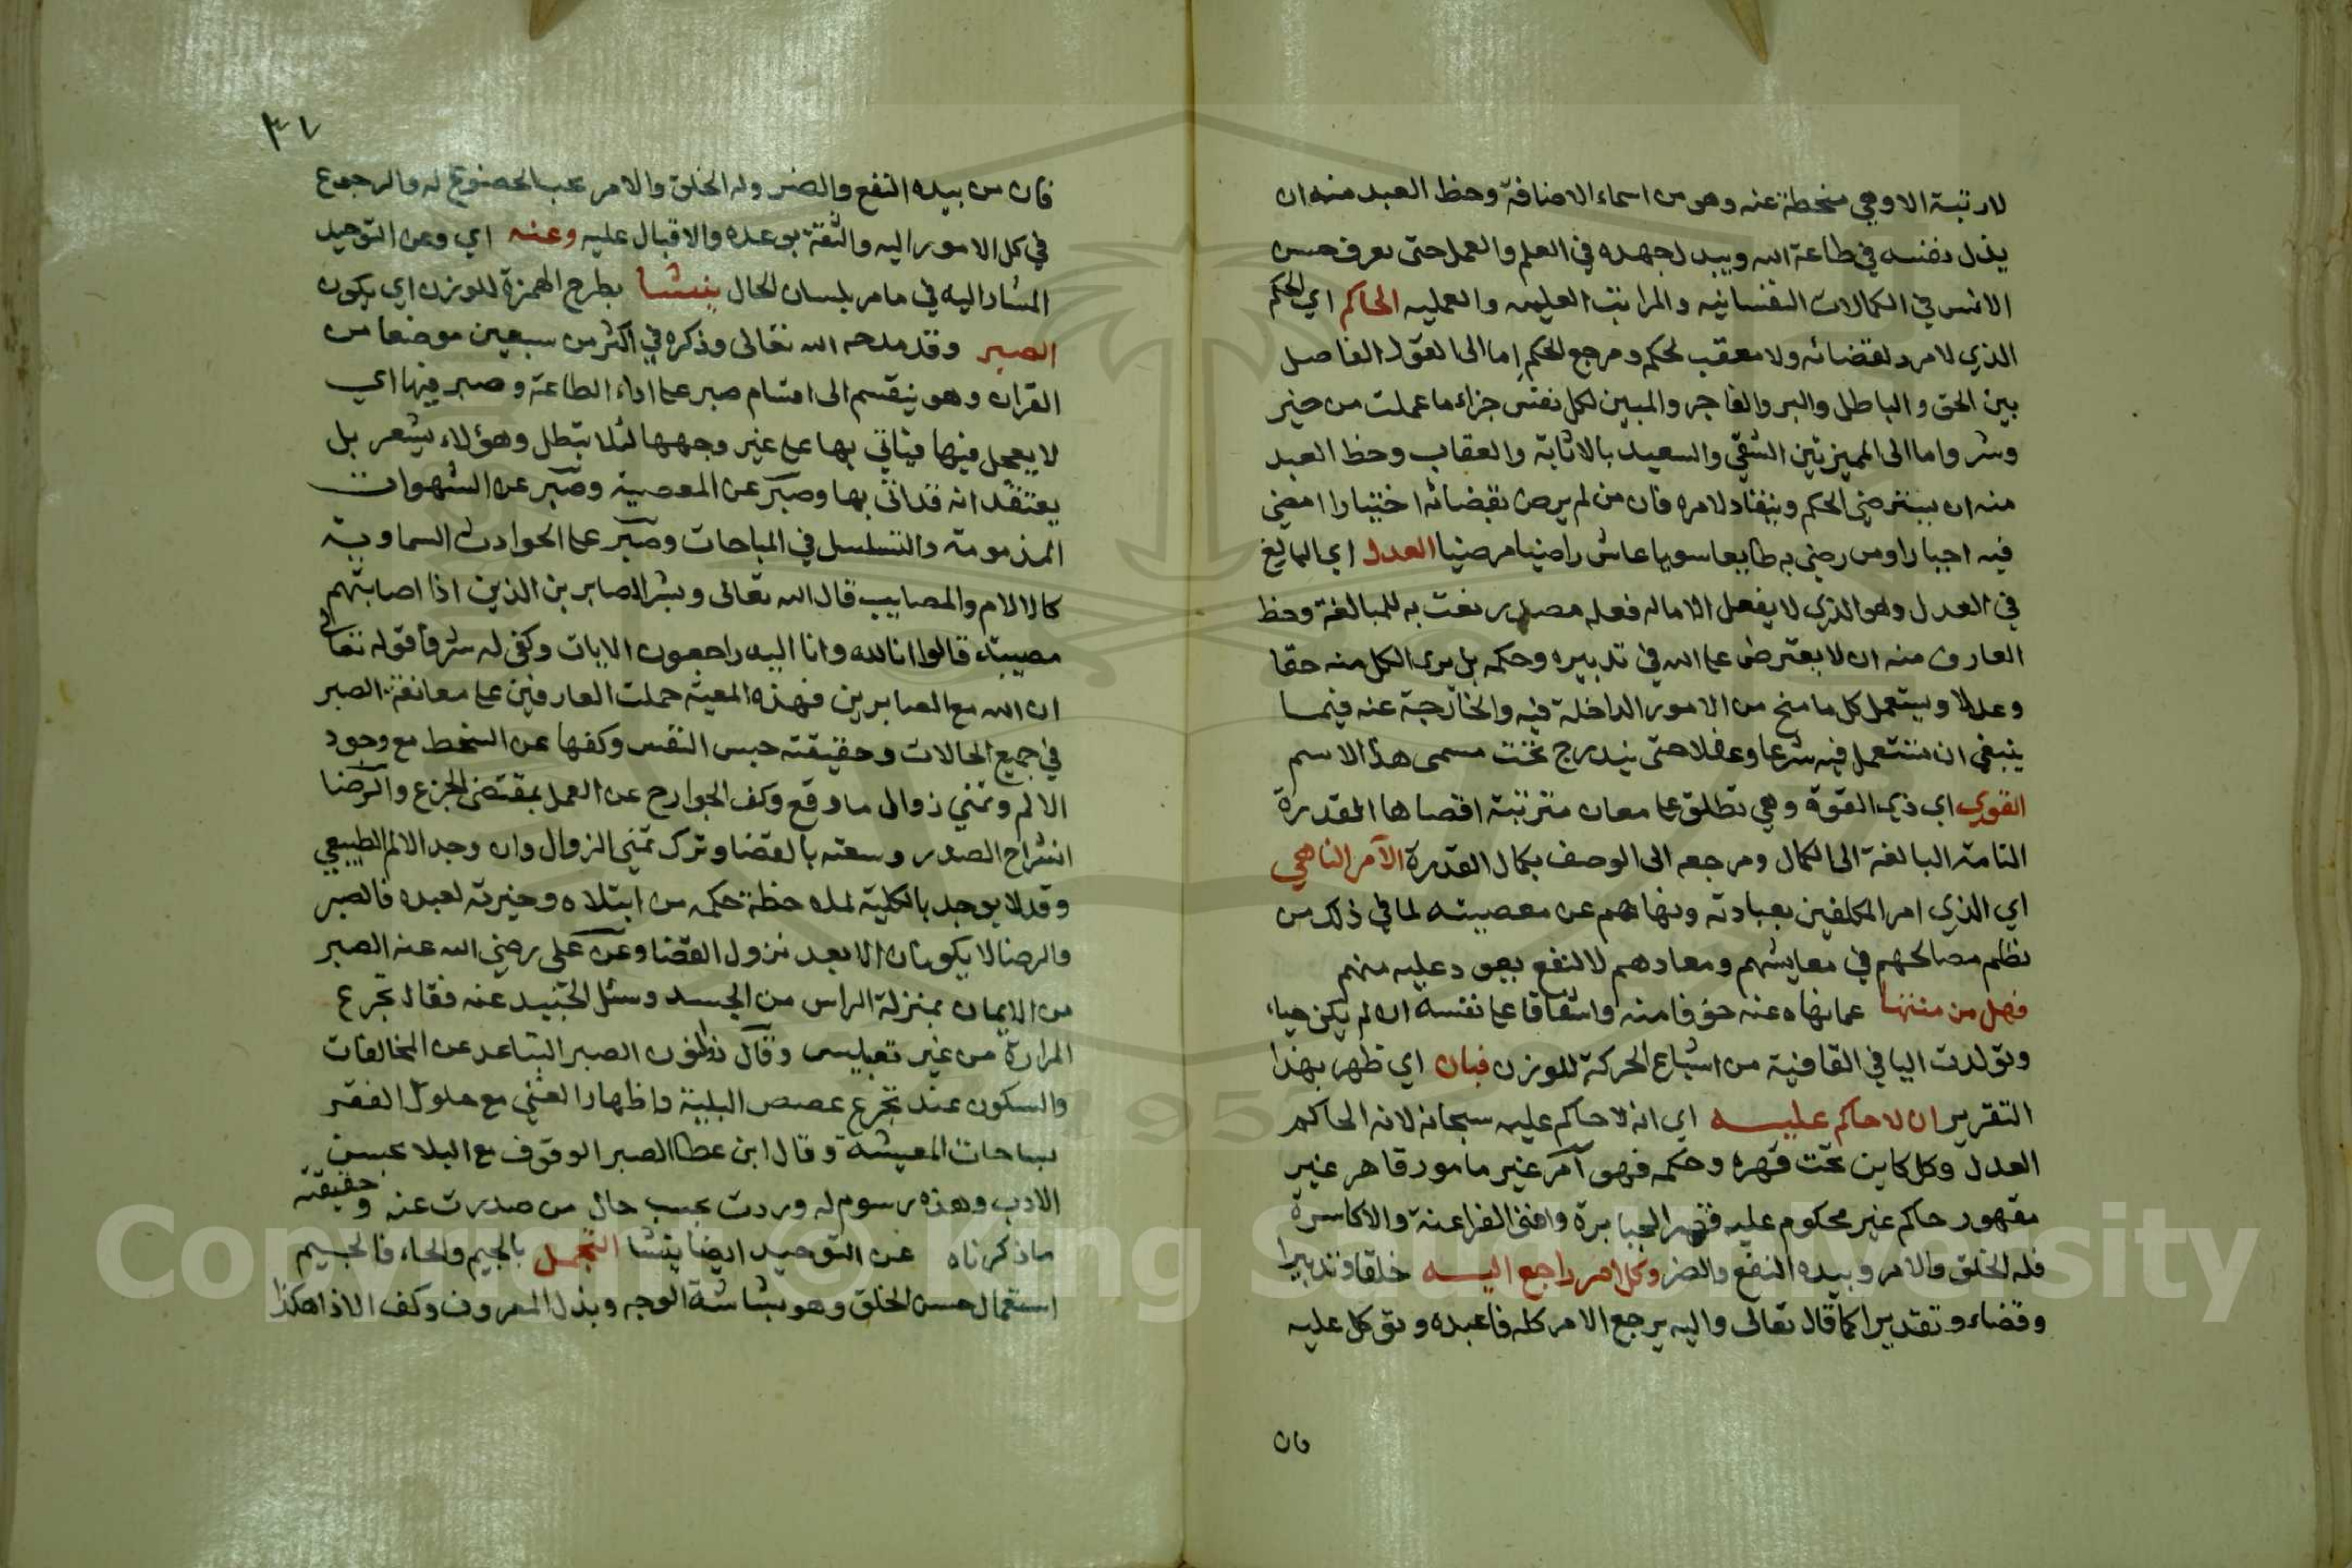 لا رتبة الا وهي منحطة عنه وهو من اسماء الاضافة وحظ العبد منه ان
يذل نفسه في طاعة الله ويبذل جهده في العلم والعمل حتى يعرف حسن
الانس في الكمالات النفسانيه والمراتب العليه والعمليه الحاكم اي الحكم
الذي لا مرد لقضائه ولا معقب لحكمه ومرجع الحكم اما الى القول الفاصل
بين الحق والباطل والبر والفاجر والمبين لكل نفس جزاء ما عملت من خير
وشر واما الى المميز بين الشقي والسعيد بالاثابة والعقاب وحظ العبد
منه ان يسترضي الحكم وينقاد لامره فان من لم يرض بقضائه اختيارا امضى
فيه اجبارا ومن رضي به طايعا سويا عاش راضيا مرضيا العدل اي البالغ
في العدل وهو الذي لا يفعل الا ماله فعله مصدر نعت به للمبالغة وحظ
العارف منه ان لا يعترض على الله في تدبيره وحكمه بل يرى الكل منه حقا
وعدلا ويستعمل كل ما منح من الامور الداخلة فيه والخارجة عنه فيما
ينبغي ان تستعمل فيه شرعا وعقلا حتى يندرج تحت مسمى هذا الاسم
القوي اي ذي القوة وهي تطلق على معان مترتبة اقصاها المقدرة
التامة البالغة الى الكمال ومرجعه الى الوصف بكمال القدرة الآمر الناهي
اي الذي امر المكلفين بعبادته ونهاهم عن معصيته لما في ذلك من
نظم مصالحهم في معايشهم ومعادهم لا لنفع يعود عليه منهم
فهل من منتها عما نهاه عنه خوفا منه واشفاقا على نفسه ان لم يكن حياء
وتولدت اليا في القافية من اشباع الحركة للوزن فبان اي ظهر بهذا
التقرير ان لا حاكم عليه اي انه لا حاكم عليه سبحانه لانه الحاكم
العدل وكل كاين تحت قهره وحكمه فهو آمر غير مامور قاهر غير
مقهور حاكم غير محكوم عليه قهر الجبابرة وافنى الفراعنة والاكاسرة
فله الخلق والامر وبيده النفع والضر وكل امر راجع اليه خلقا وتدبيرا
وقضاء وتقديرا كما قال تعالى واليه يرجع الامر كله فاعبده وتوكل عليه
فان
٣٧
فان من بيده النفع والضر وله الخلق والامر يجب الخضوع له والرجوع
في كل الامور اليه والثقة بوعده والاقبال عليه وعنه اي وعن التوحيد
المشار اليه في ما مر بلسان الحال ينشا بطرح الهمزة للوزن اي يكون
الصبر وقد مدحه الله تعالى وذكره في اكثر من سبعين موضعا من
القران وهو ينقسم الى اقسام صبر على اداء الطاعة وصبر فيها اي
لا يعجل فيها فياتي بها على غير وجهها لئلا تبطل وهؤلاء يشعر بل
يعتقد انه قد اتى بها وصبر عن المعصية وصبر عن الشهوات
المذمومة والتسلسل في المباحات وصبر على الحوادث السماوية
كالالام والمصايب قال الله تعالى وبشر الصابرين الذين اذا اصابتهم
مصيبة قالوا انا لله وانا اليه راجعون الايات وكفى له شرفا قوله تعالى
ان الله مع الصابرين فهذه المعية حملت العارفين على معانقة الصبر
في جميع الحالات وحقيقته حبس النفس وكفها عن السخط مع وجود
الالم وتمني زوال ما وقع وكف الجوارح عن العمل بمقتضى الجزع والرضا
انشراح الصدر وسعته بالقضا وترك تمني الزوال وان وجد الالم الطبيعي
وقد لا يوجد بالكلية لملاحظة حكمه من ابتلاه وخيرته لعبده فالصبر
والرضا لا يكونان الا بعد نزول القضا وعن علي رضي الله عنه الصبر
من الايمان بمنزلة الراس من الجسد وسئل الجنيد عنه فقال تجرع
المرارة من غير تعبيس وقال ذو النون الصبر التباعد عن المخالفات
والسكون عند تجرع غصص البلية واظهار الغنى مع حلول الفقر
بساحات المعيشة وقال ابن عطا الصبر الوقوف مع البلا بحسن
الادب وهذه رسوم له وردت بحسب حال من صدرت عنه وحقيقته
ما ذكرناه عن التوحيد ايضا ينشا التجمل بالجيم والحاء فالجيم
استعمال حسن الخلق وهو بشاشة الوجه وبذل المعروف وكف الاذا هكذا
Copyright © King Saud University